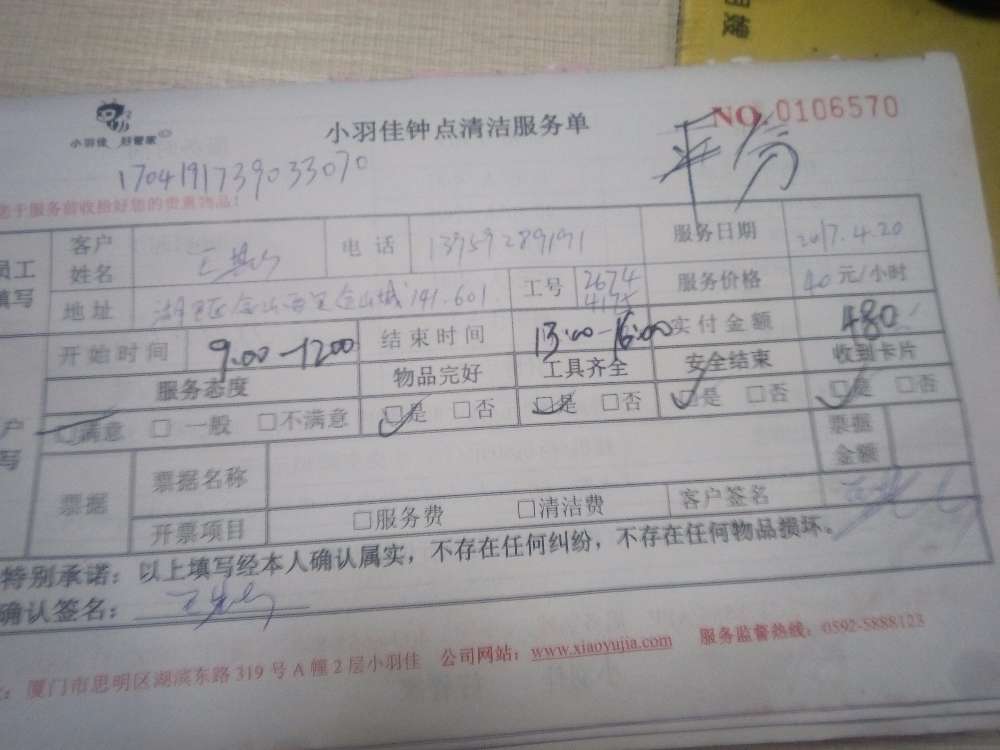 明嫂
小羽佳 好管家
小羽佳钟点清洁服务单
NO. 0106570
平分
1704191739033070
于服务前收拾好您的贵重物品!
员工填写
客户姓名 电话 13959289191 服务日期 2017.4.20
地址 湖里区金山西里金山城141.601 工号 2674 服务价格 40元/小时
开始时间 9:00-1200 结束时间 13:00-16:00 实付金额 480
服务态度 物品完好 工具齐全 安全结束 收到卡片
户写
□满意 □一般 □不满意 □是 □否 □是 □否 □是 □否 □是 □否
票据 票据名称 票据金额
开票项目 □服务费 □清洁费 客户签名
特别承诺:以上填写经本人确认属实,不存在任何纠纷,不存在任何物品损坏。
确认签名:
厦门市思明区湖滨东路319号A幢2层小羽佳 公司网站:www.xiaoyujia.com 服务监督热线:0592-5888123